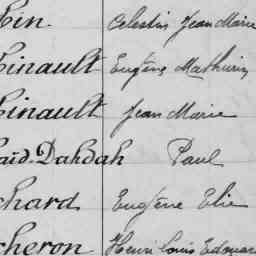 hin. Célestin Jean Marie
hinault Eugène Mathurin
hinault Jean Marie
aïd-Dahdah Paul
chard Eugène Elie
cheron Henri Louis Edouar